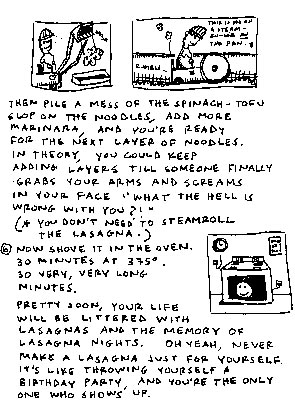 THIS IS ME ON
A STEAM-
THE PAN.
THEN PILE A MESS OF THE SPINACH-TOFU
SLOP ON THE NOODLES, ADD MORE
MARINARA, AND YOU'RE READY
FOR THE NEXT LAYER OF NOODLES.
IN THEORY, YOU COULD KEEP
ADDING LAYERS TILL SOMEONE FINALLY
GRABS YOUR ARMS AND SCREAMS
IN YOUR FACE "WHAT THE HELL IS
WRONG WITH YOU?!"
(* YOU DON'T NEED TO STEAMROLL
THE LASAGNA.)
⑥ NOW SHOVE IT IN THE OVEN.
30 MINUTES AT 375°.
30 VERY, VERY LONG
MINUTES.
PRETTY SOON, YOUR LIFE
WILL BE LITTERED WITH
LASAGNAS AND THE MEMORY OF
LASAGNA NIGHTS. OH YEAH, NEVER
MAKE A LASAGNA JUST FOR YOURSELF.
IT'S LIKE THROWING YOURSELF A
BIRTHDAY PARTY, AND YOU'RE THE ONLY
ONE WHO SHOWS UP.